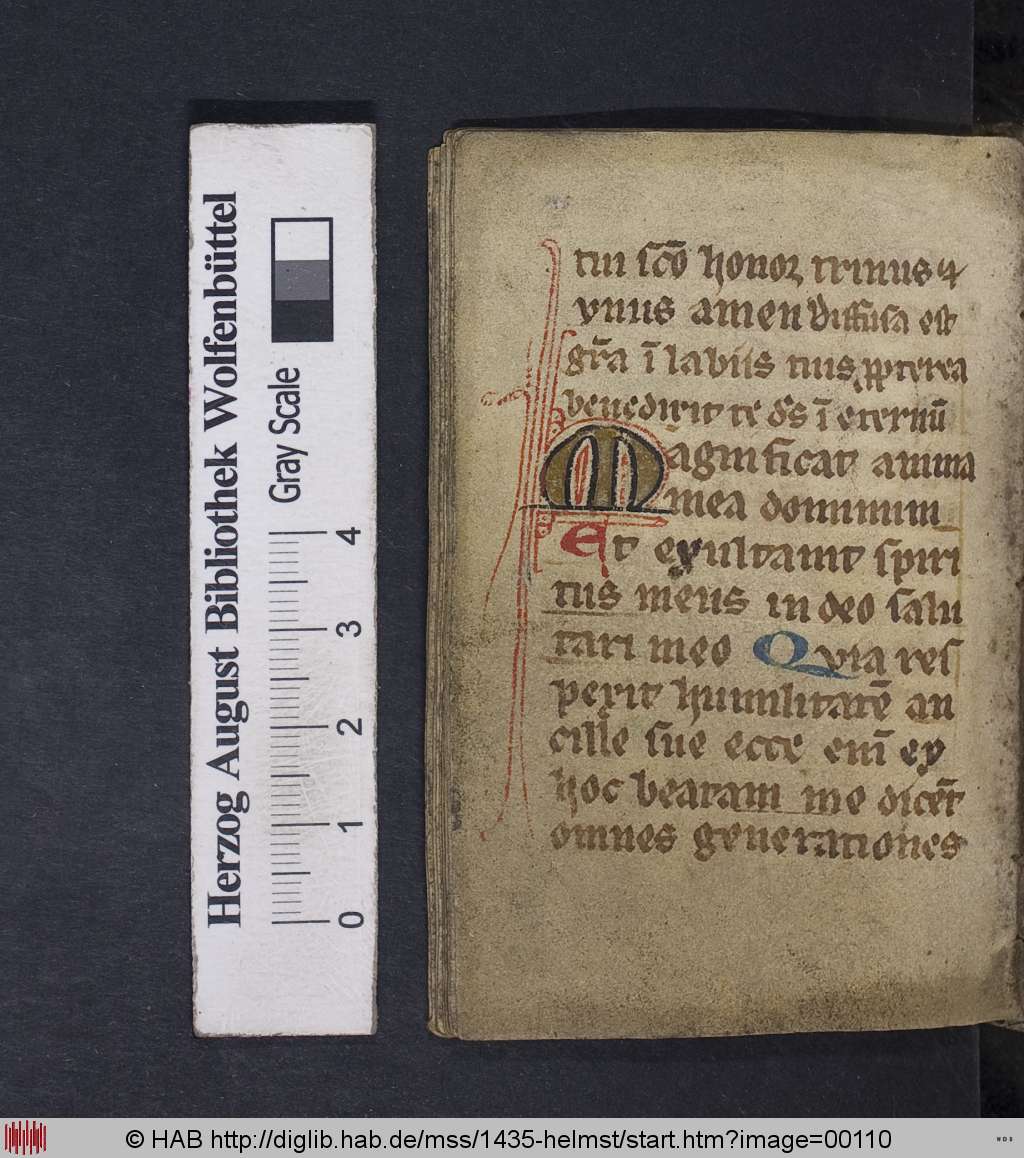 Herzog August Bibliothek Wolfenbüttel
Gray Scale
0 1 2 3 4
tui sc̄o honor trinus ⁊
vnus amen Diffusa est
gr̄a ī labiis tuis ꝓpterea
benedixit te ds̄ ī eternū
Magnificat anima
mea dominum
Et exultauit spiri
tus meus in deo salu
tari meo Quia res
pexit humilitatē an
cille sue ecce enī ex
hoc beatam me dicēt
omnes generationes
© HAB http://diglib.hab.de/mss/1435-helmst/start.htm?image=00110